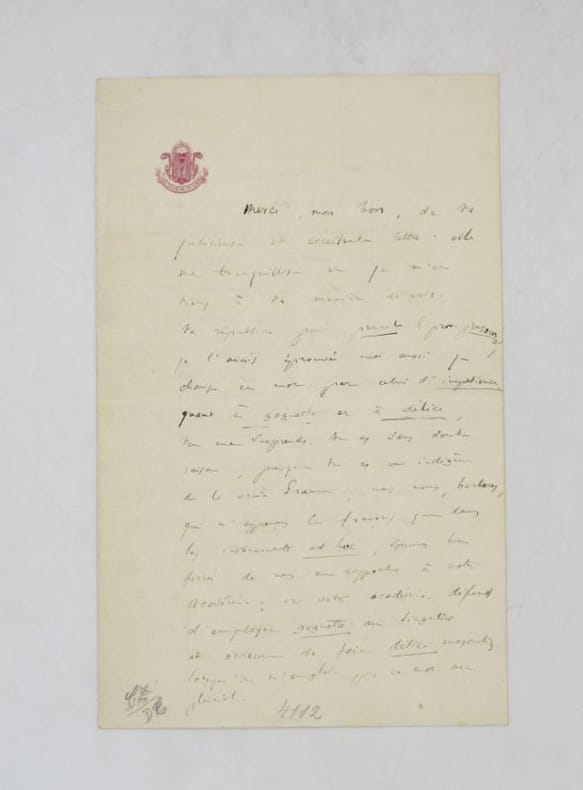 Merci, mon bon, de ta
judicieuse et excellente lettre : elle
me tranquillise et je m'en
tiens à ta manière de voir.
Ta répulsion pour
je l'avais éprouvée moi aussi et j'ai
changé ce mot par celui d'impatience
quant à goguette et à délice,
tu me surprends. Tu as sans doute
raison, puisque tu es un indigène
de la vraie France, mais nous, barbares,
qui n'apprenons le français que dans
les instruments ad hoc, sommes bien
forcés de nous en rapporter à votre
Académie ; or votre académie défend
d'employer goguette au singulier
et ordonne de faire délice masculin
lorsqu'on n'emploie pas ce mot au
pluriel.
4112